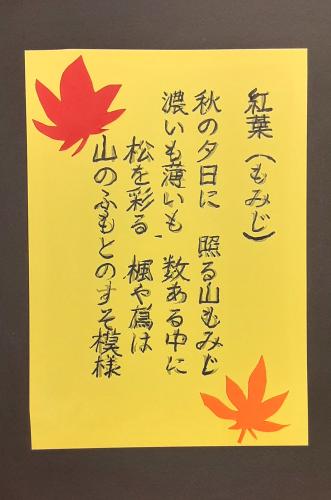 紅葉(もみじ)
秋の夕日に 照る山もみじ
濃いも薄いも 数ある中に
松を彩る、楓や蔦は
山のふもとのすそ模様